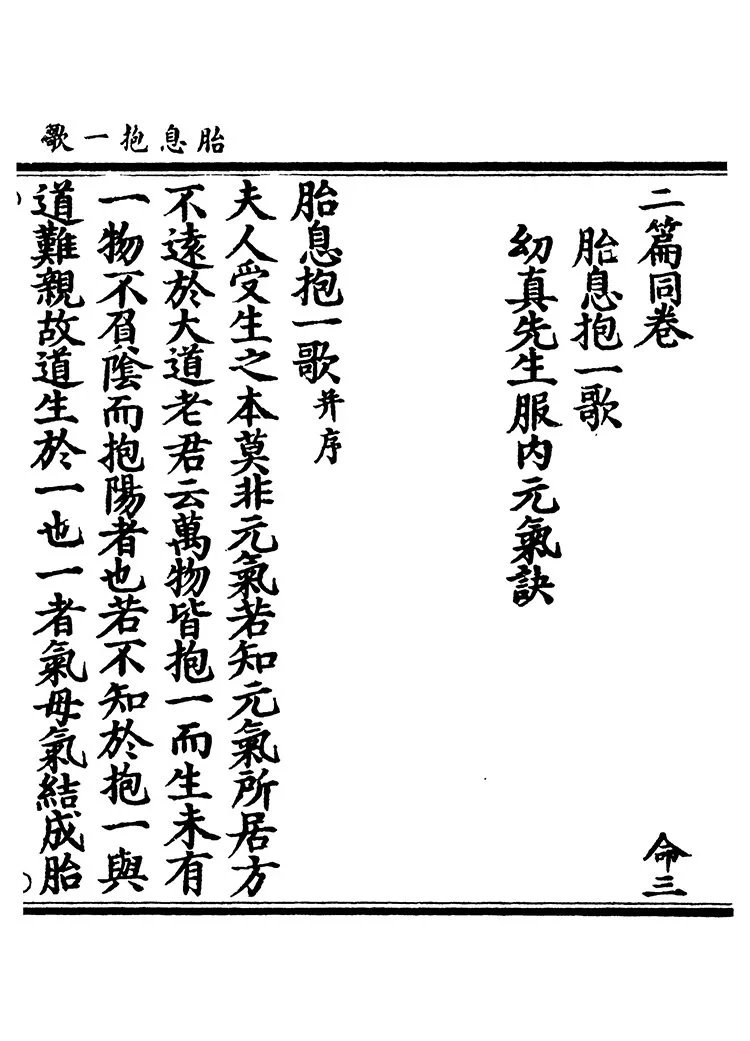 胎息抱一歌
二篇同卷 命三
胎息抱一歌
幼真先生服內元氣訣
胎息抱一歌并序
夫人受生之本莫非元氣若知元氣所居方
不遠於大道老君云萬物皆抱一而生未有
一物不負陰而抱陽者也若不知於抱一與
道難親故道生於一也一者氣母氣結成胎